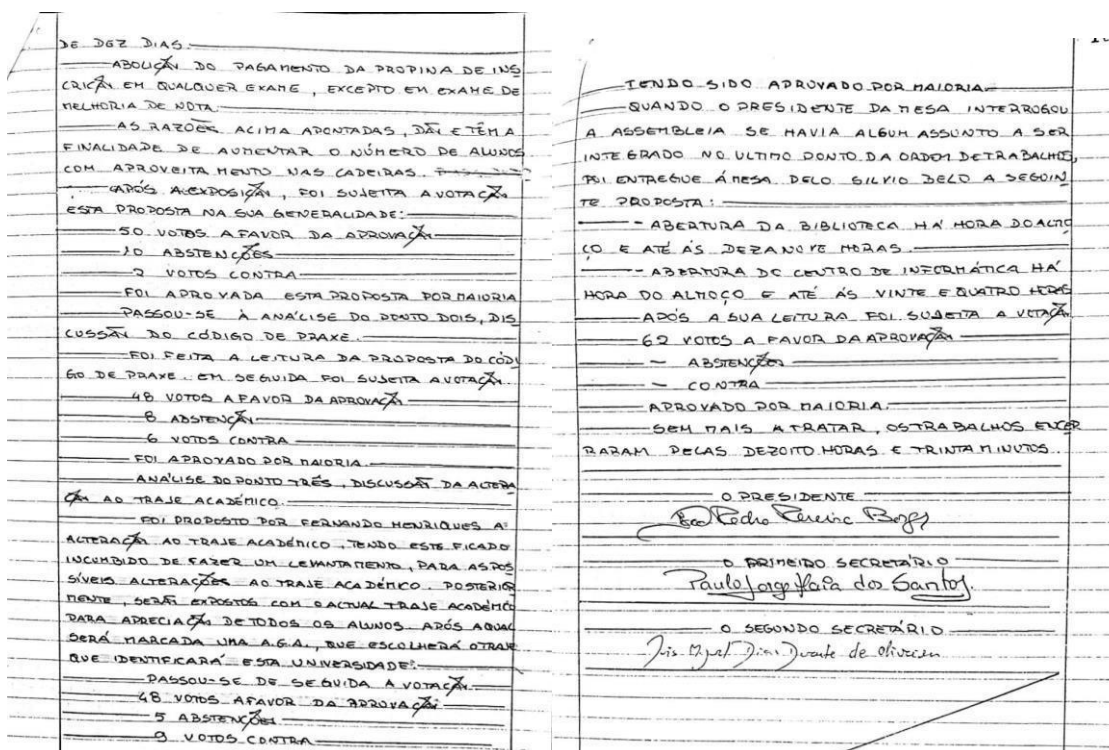 DE DEZ DIAS.
ABOLIÇÃO DO PAGAMENTO DA PROPINA DE INS
CRIÇÃO EM QUALQUER EXAME, EXCEPTO EM EXAME DE
MELHORIA DE NOTA.
AS RAZÕES ACIMA APONTADAS, DÃO E TÊM A
FINALIDADE DE AUMENTAR O NÚMERO DE ALUNOS
COM APROVEITAMENTO NAS CADEIRAS.
APÓS A EXPOSIÇÃO, FOI SUJEITA A VOTAÇÃO
ESTA PROPOSTA NA SUA GENERALIDADE:
50 VOTOS A FAVOR DA APROVAÇÃO
10 ABSTENÇÕES
2 VOTOS CONTRA
FOI APROVADA ESTA PROPOSTA POR MAIORIA
PASSOU-SE À ANÁLISE DO PONTO DOIS, DIS
CUSSÃO DO CÓDIGO DE PRAXE.
FOI FEITA A LEITURA DA PROPOSTA DO CÓDI
GO DE PRAXE. EM SEGUIDA FOI SUJEITA A VOTAÇÃO.
48 VOTOS A FAVOR DA APROVAÇÃO
8 ABSTENÇÃO
6 VOTOS CONTRA
FOI APROVADO POR MAIORIA.
ANÁLISE DO PONTO TRÊS, DISCUSSÃO DA ALTERA
ÇÃO AO TRAJE ACADÉMICO.
FOI PROPOSTO POR FERNANDO HENRIQUES A
ALTERAÇÃO AO TRAJE ACADÉMICO, TENDO ESTE FICADO
INCUMBIDO DE FAZER UM LEVANTAMENTO, PARA AS POS
SÍVEIS ALTERAÇÕES AO TRAJE ACADÉMICO. POSTERIOR
MENTE, SERÃO EXPOSTOS COM O ACTUAL TRAJE ACADÉMICO
PARA APRECIAÇÃO DE TODOS OS ALUNOS. APÓS A QUAL
SERÁ MARCADA UMA A.G.A., QUE ESCOLHERÁ O TRAJE
QUE IDENTIFICARÁ ESTA UNIVERSIDADE:
PASSOU-SE DE SEGUIDA A VOTAÇÃO.
48 VOTOS A FAVOR DA APROVAÇÃO
5 ABSTENÇÕES
9 VOTOS CONTRA
TENDO SIDO APROVADO POR MAIORIA.
QUANDO O PRESIDENTE DA MESA INTERROGOU
A ASSEMBLEIA SE HAVIA ALGUM ASSUNTO A SER
INTEGRADO NO ULTIMO PONTO DA ORDEM DE TRABALHOS,
FOI ENTREGUE Á MESA PELO SILVIO BELO A SEGUIN
TE PROPOSTA:
- ABERTURA DA BIBLIOTECA HÁ HORA DO ALMO
ÇO E ATÉ ÁS DEZANOVE HORAS.
- ABERTURA DO CENTRO DE INFORMÁTICA HÁ
HORA DO ALMOÇO E ATÉ ÁS VINTE E QUATRO HORAS
APÓS A SUA LEITURA FOI SUJEITA A VOTAÇÃO
62 VOTOS A FAVOR DA APROVAÇÃO
- ABSTENÇÕES
- CONTRA
APROVADO POR MAIORIA.
SEM MAIS A TRATAR, OS TRABALHOS ENCER
RARAM PELAS DEZOITO HORAS E TRINTA MINUTOS.
O PRESIDENTE
Pedro Pereira Borges
O PRIMEIRO SECRETÁRIO
Paulo Jorge Maia dos Santos.
O SEGUNDO SECRETÁRIO
Luis Miguel Dias Duarte de Oliveira